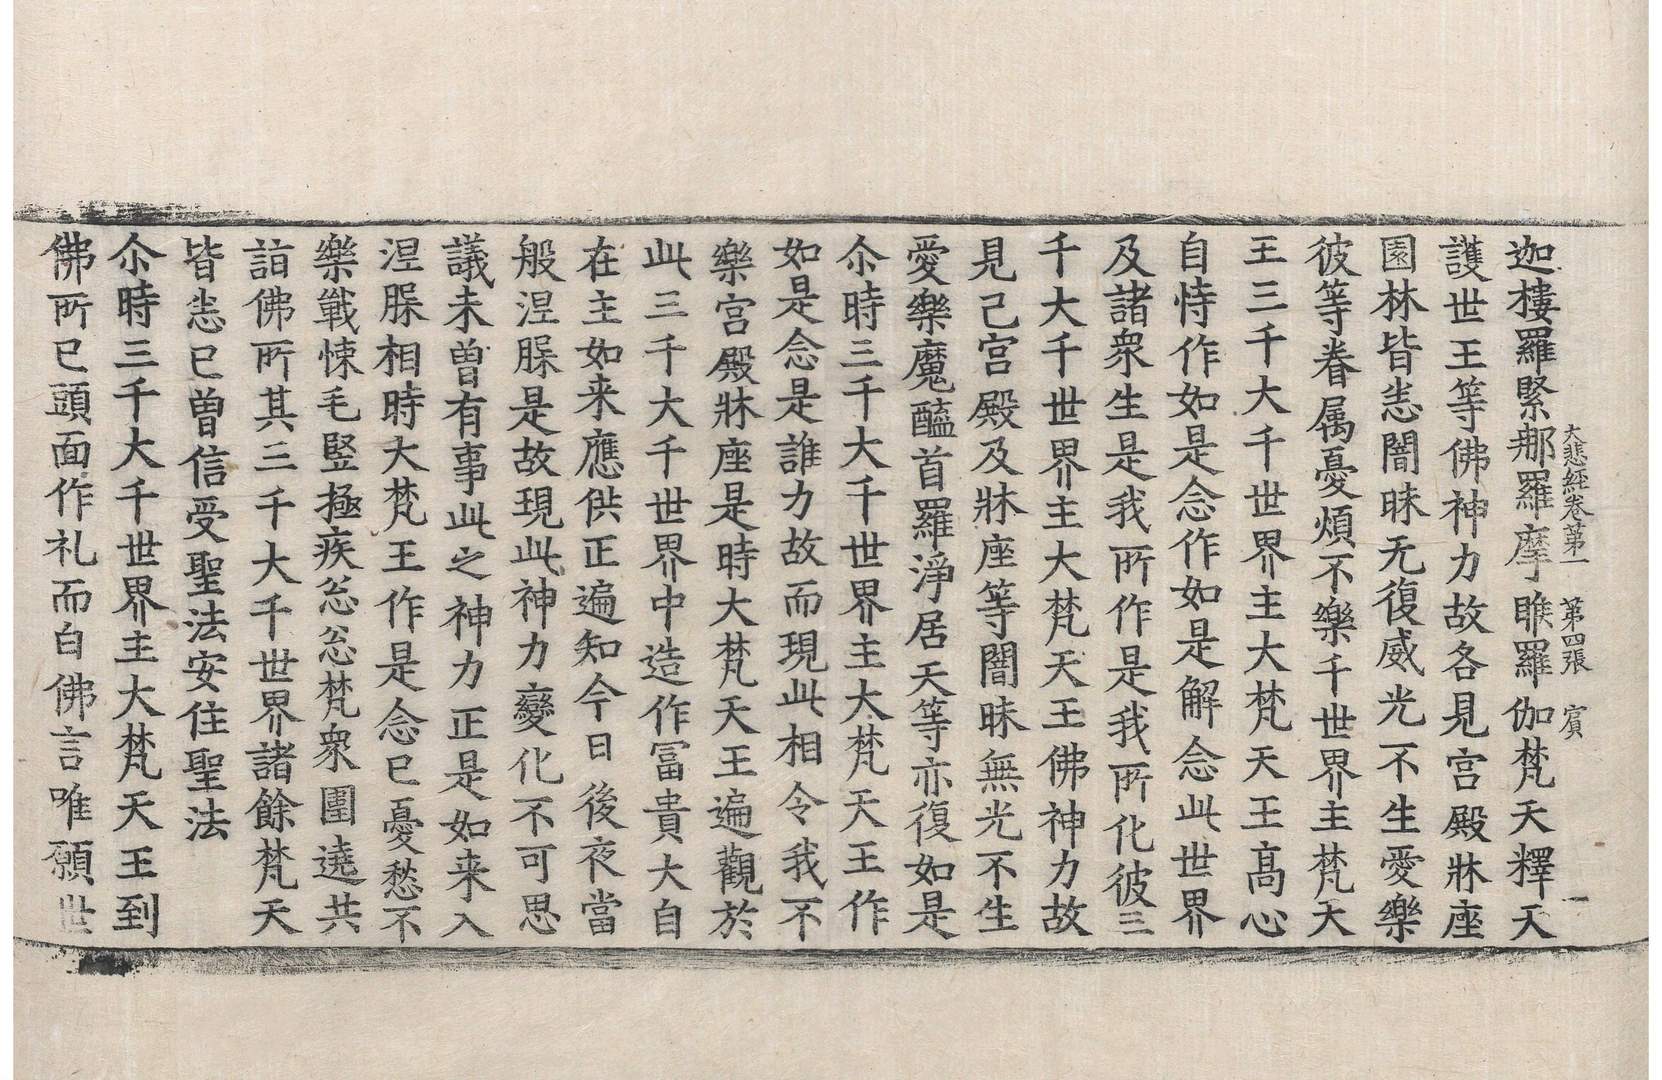 大悲經卷第一　第四張　賓
迦樓羅緊那羅摩睺羅伽梵天釋天
護世王等佛神力故各見宮殿牀座
園林皆悉闇昧无復威光不生愛樂
彼等眷属憂煩不樂千世界主梵天
王三千大千世界主大梵天王高心
自恃作如是念作如是解念此世界
及諸衆生是我所作是我所化彼三
千大千世界主大梵天王佛神力故
見己宮殿及牀座等闇昧無光不生
愛樂魔醯首羅淨居天等亦復如是
尒時三千大千世界主大梵天王作
如是念是誰力故而現此相令我不
樂宮殿牀座是時大梵天王遍觀於
此三千大千世界中造作冨貴大自
在主如来應供正遍知今日後夜當
般涅脲是故現此神力變化不可思
議未曽有事此之神力正是如来入
涅脲相時大梵王作是念已憂愁不
樂戰悚毛竪極疾忩忩梵衆圍遶共
詣佛所其三千大千世界諸餘梵天
皆悉已曽信受聖法安住聖法
尒時三千大千世界主大梵天王到
佛所已頭面作礼而白佛言唯願世